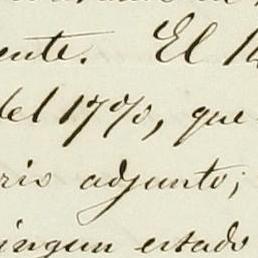 ente. El
del 17%, que
rio adjunto;
ningun estado